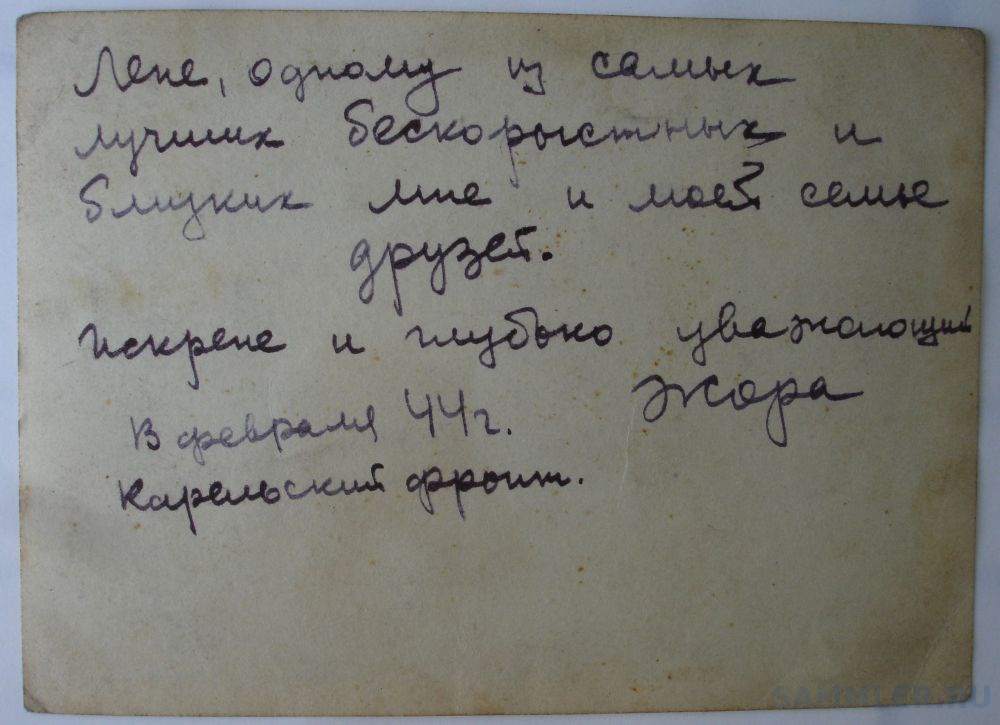 Лене, одному из самых
лучших бескорыстных и
близких мне и моей семье
друзей.
Искрене и глубоко уважающий
Жора
13 февраля 44 г.
Карельский фронт.
SAMMLER.RU